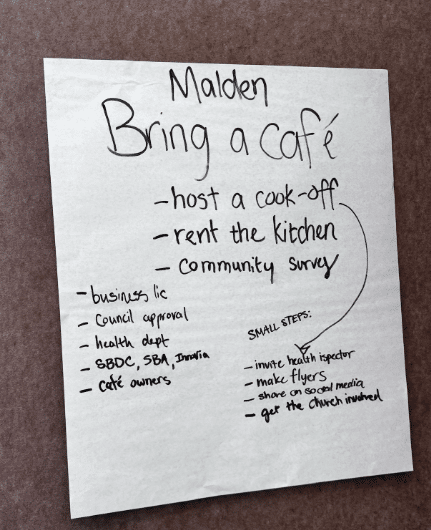 Malden
Bring a café
- host a cook-off
- rent the kitchen
- community survey
- business lic
- Council approval
- health dept
- SBDC, SBA, Innovia
- café owners
SMALL STEPS:
- invite health ispector
- make flyers
- share on social media
- get the church involved